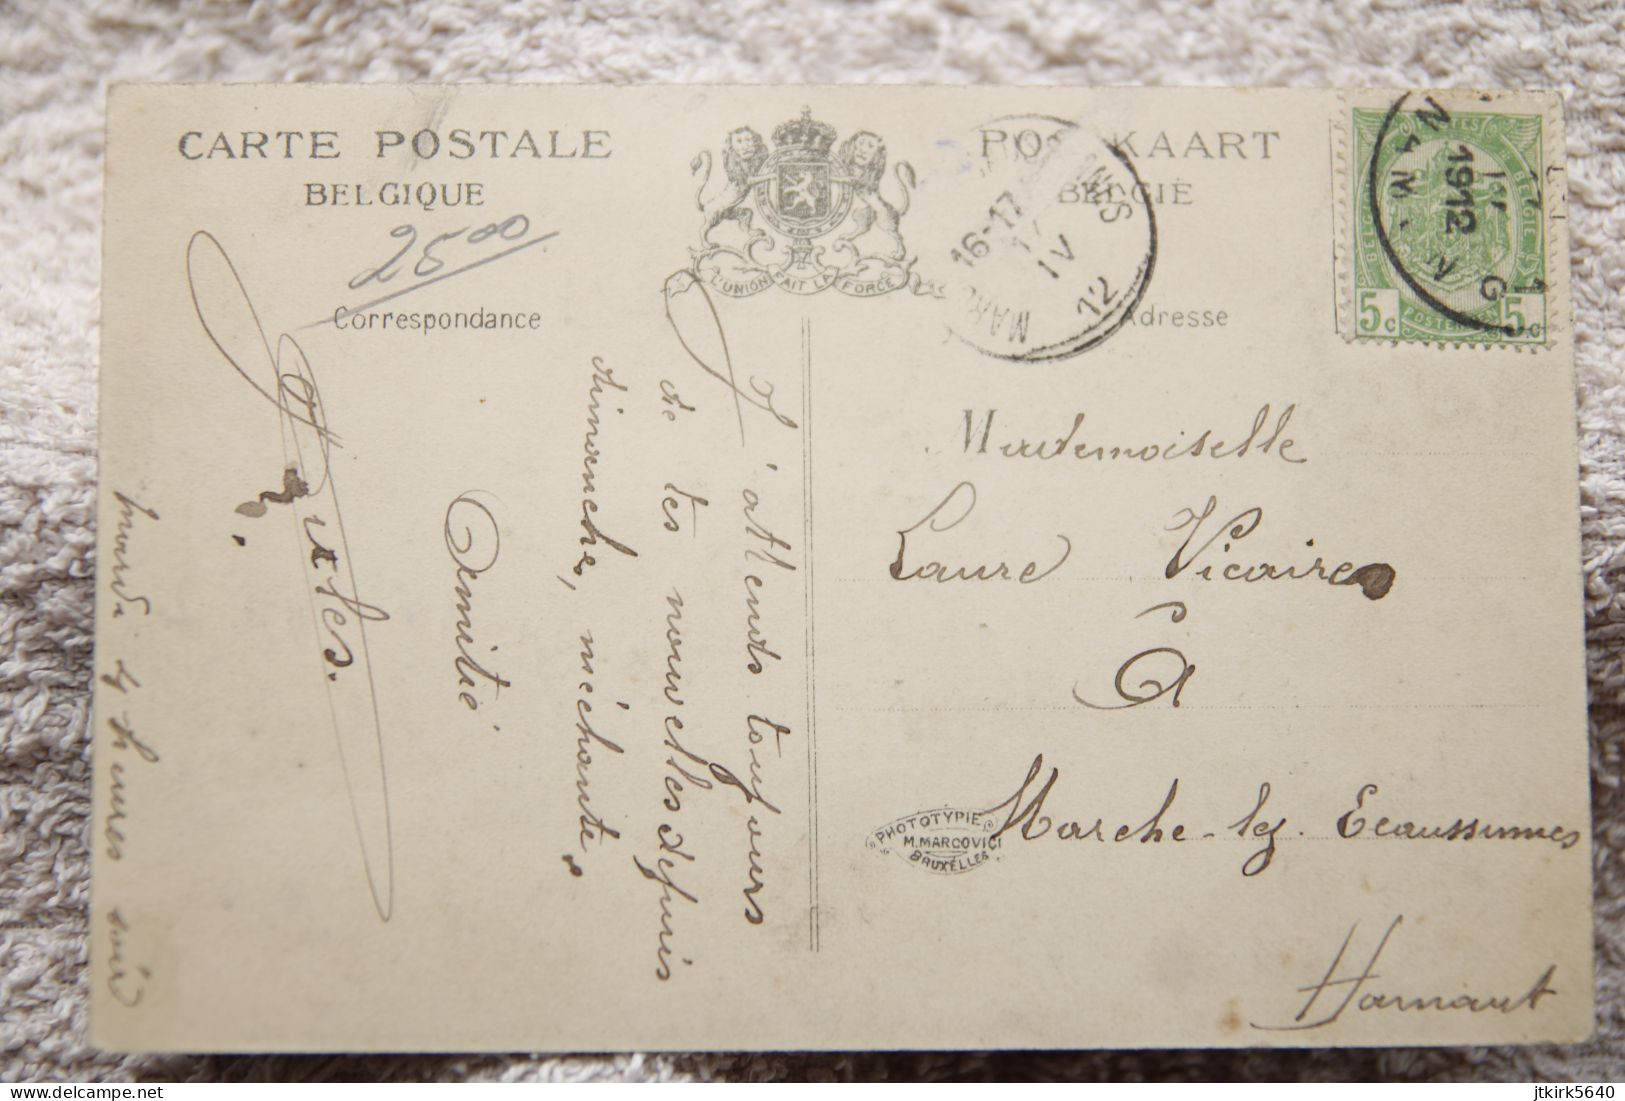 CARTE POSTALE
BELGIQUE
POSTKAART
BELGIË
L'UNION FAIT LA FORCE
2500
Correspondance
Adresse
16-17
IV
12
1912
BELGIQUE POSTES BELGIE
POSTERIJEN
5c 5c
J'attends toujours
de tes nouvelles depuis
dimanche, méchante.
Amitié
Jules.
mardi 4 heures soir
Mademoiselle
Laure Vicaire
à
Marche-lez-Ecaussinnes
Hainaut
PHOTOTYPIE
M. MARCOVICI
BRUXELLES
jtkirk5640